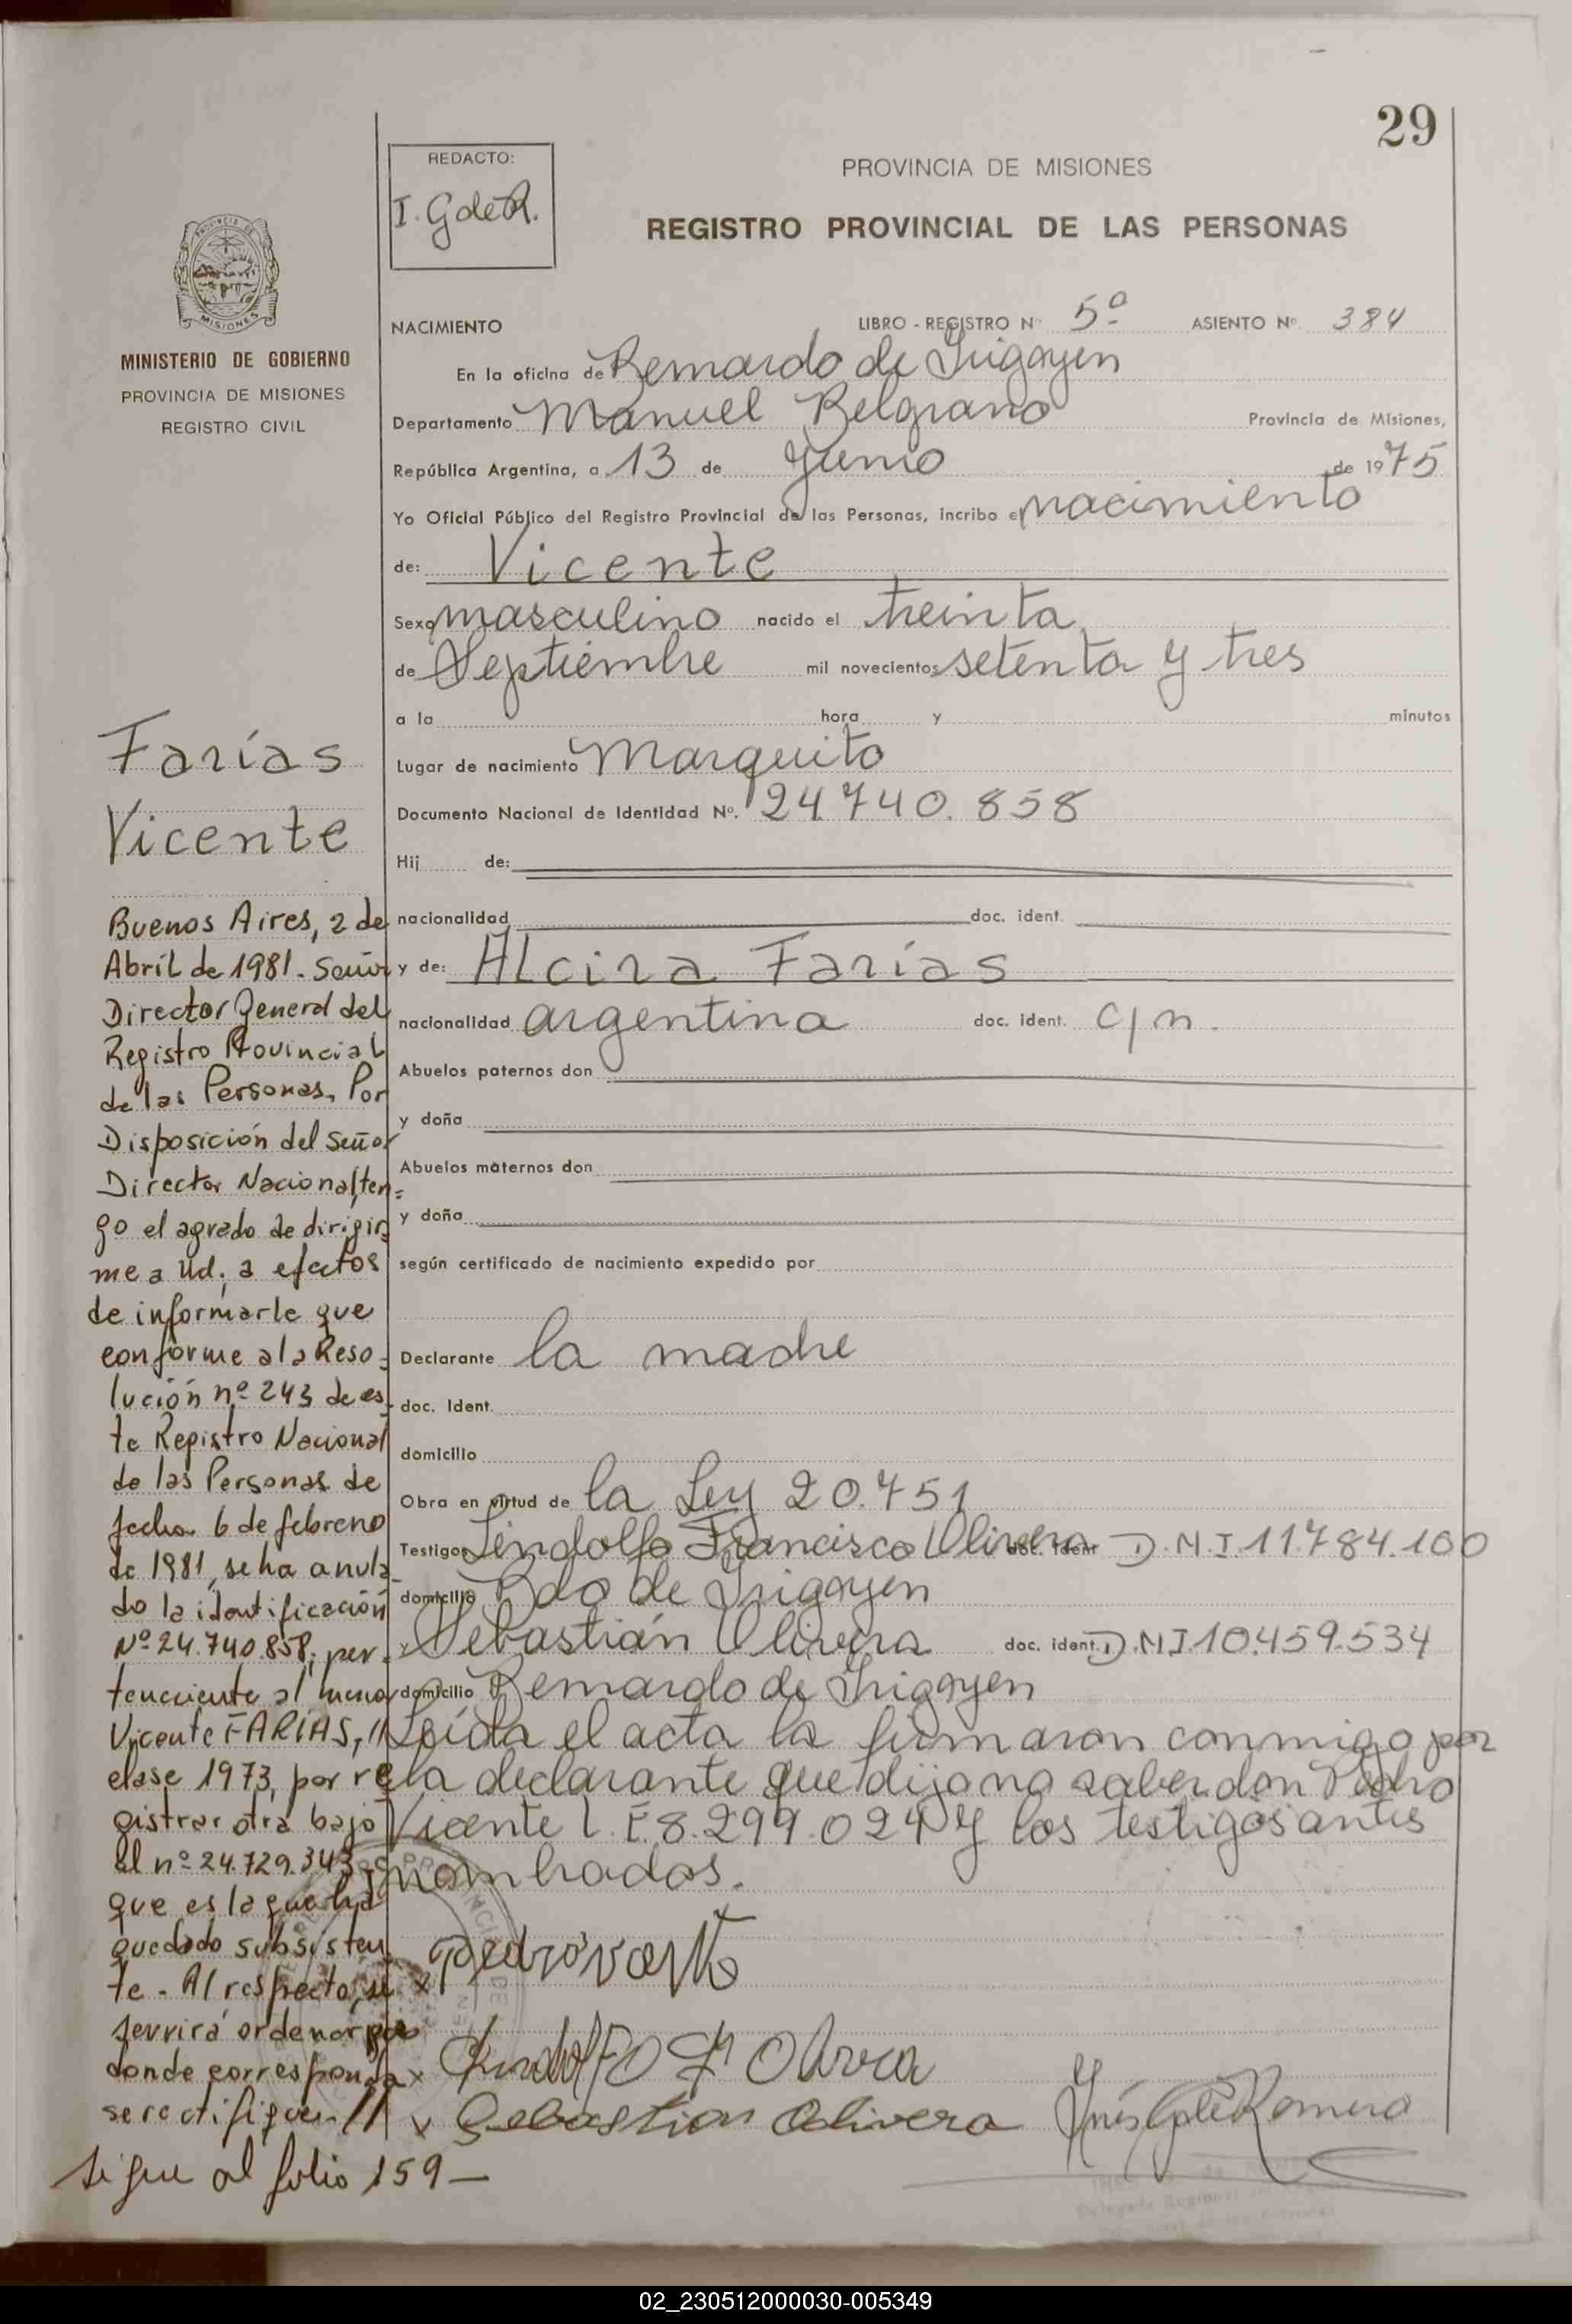 29
REDACTO:
I. G de R.
PROVINCIA DE MISIONES
REGISTRO PROVINCIAL DE LAS PERSONAS
MISIONES
MINISTERIO DE GOBIERNO
PROVINCIA DE MISIONES
REGISTRO CIVIL
NACIMIENTO LIBRO - REGISTRO Nº 5º ASIENTO Nº 384
En la oficina de Bernardo de Irigoyen
Departamento Manuel Belgrano Provincia de Misiones,
República Argentina, a 13 de Junio de 1975
Yo Oficial Público del Registro Provincial de las Personas, incribo el nacimiento
de: Vicente
Sexo masculino nacido el treinta
de Septiembre mil novecientos setenta y tres
a la hora y minutos
Lugar de nacimiento Marquito
Documento Nacional de Identidad Nº. 24.740.858
Hij de:
nacionalidad doc. ident.
y de: Alcira Farías
nacionalidad argentina doc. ident. c/n.
Abuelos paternos don
y doña
Abuelos maternos don
y doña
según certificado de nacimiento expedido por
Declarante la madre
doc. Ident.
domicilio
Obra en virtud de la Ley 20.751
Testigos Lindolfo Francisco Olivera doc. ident D.N.I.11.784.100
domicilio Bdo de Irigoyen
y Sebastián Olivera doc. ident. D.N.I.10.459.534
domicilio Bernardo de Irigoyen
Leída el acta la firmaron conmigo por
la declarante que dijo no saber don Pedro
Vicente L.E.8.299.024 y los testigos antes
nombrados.
x Pedro
x Lindolfo F Olivera
x Sebastian Olivera
Inés G de Romero
Farías
Vicente
Buenos Aires, 2 de
Abril de 1981. Señor
Director General del
Registro Provincial
de las Personas. Por
Disposición del Señor
Director Nacional, ten=
go el agrado de dirigir=
me a Ud., a efectos
de informarle que
conforme a la Reso=
lución nº 243 de es-
te Registro Nacional
de las Personas de
fecha 6 de febrero
de 1981, se ha anula-
do la identificación
Nº 24.740.858, per-
teneciente al menor
Vicente FARÍAS, //
clase 1973, por re
gistrar otra bajo
el nº 24.729.343
que es la que ha
quedado subsisten
te. Al respecto, se
servirá ordenar por
donde corresponda
se rectifiquen //
sigue al folio 159-
02_230512000030-005349